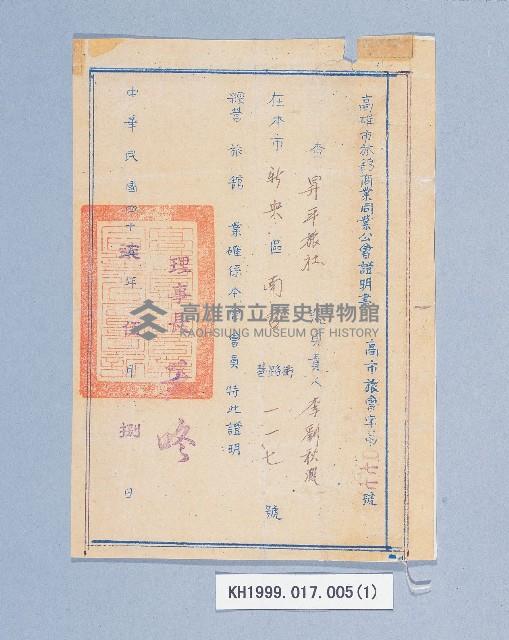 高雄市旅館商業同業公會證明書 高市旅會字第 號
查昇平旅社 負責人李劉
在本市新興區南台 街路巷 一一七 號
經營旅館業確係本會會員特此證明
理事長
中華民國四十 年伍月捌日
高雄市立歷史博物館
KAOHSIUNG MUSEUM OF HISTORY
KH1999.017.005(1)